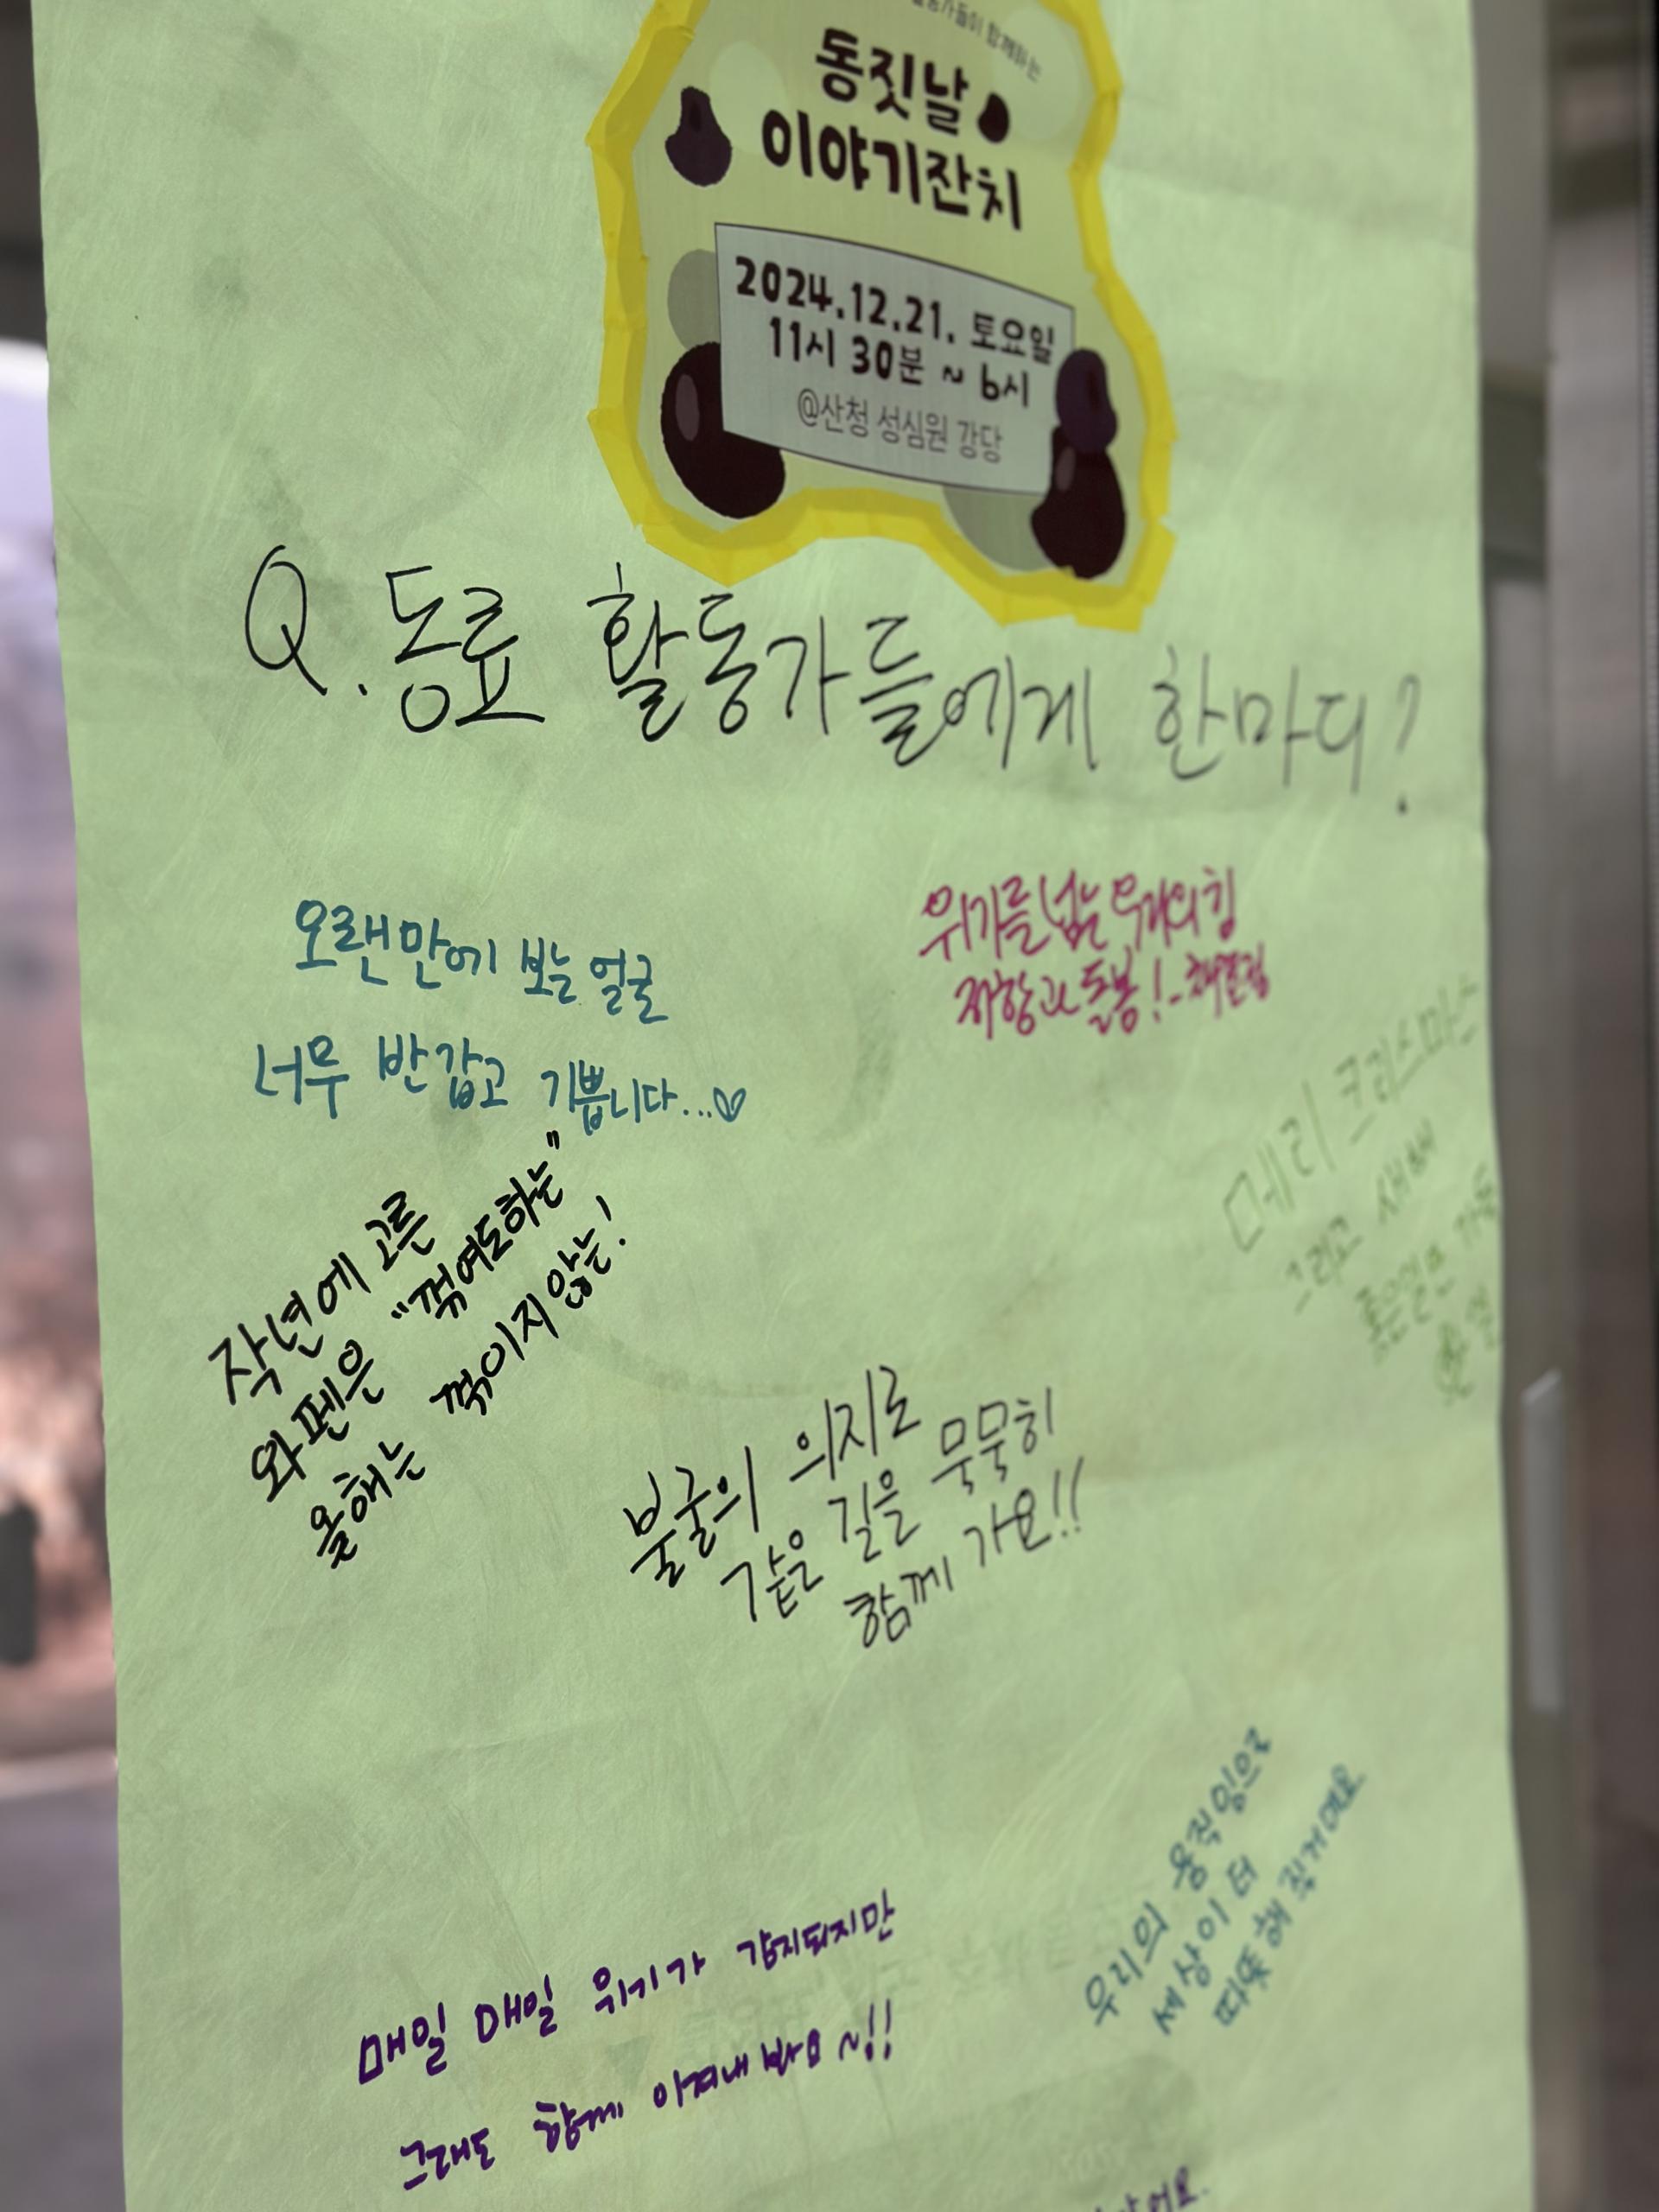 함께하는
동짓날
이야기잔치
2024.12.21. 토요일
11시 30분 ~ 6시
@산청 성심원 강당
Q. 동료 활동가들에게 한마디?
오랜만에 보는 얼굴
너무 반갑고 기쁩니다...♡
위기를 넘는 우리의 힘
저항과 돌봄! -
메리 크리스마스
그리고 새해
좋은일만 가득
작년에 고른
와펜은 "꺾여도하는"
올해는 꺾이지않는!
불굴의 의지로
같은 길을 묵묵히
함께 가요!!
우리의 움직임으로
세상이 더
따뜻해질거예요
매일 매일 위기가 감지되지만
그래도 함께 이겨내봐요~!!